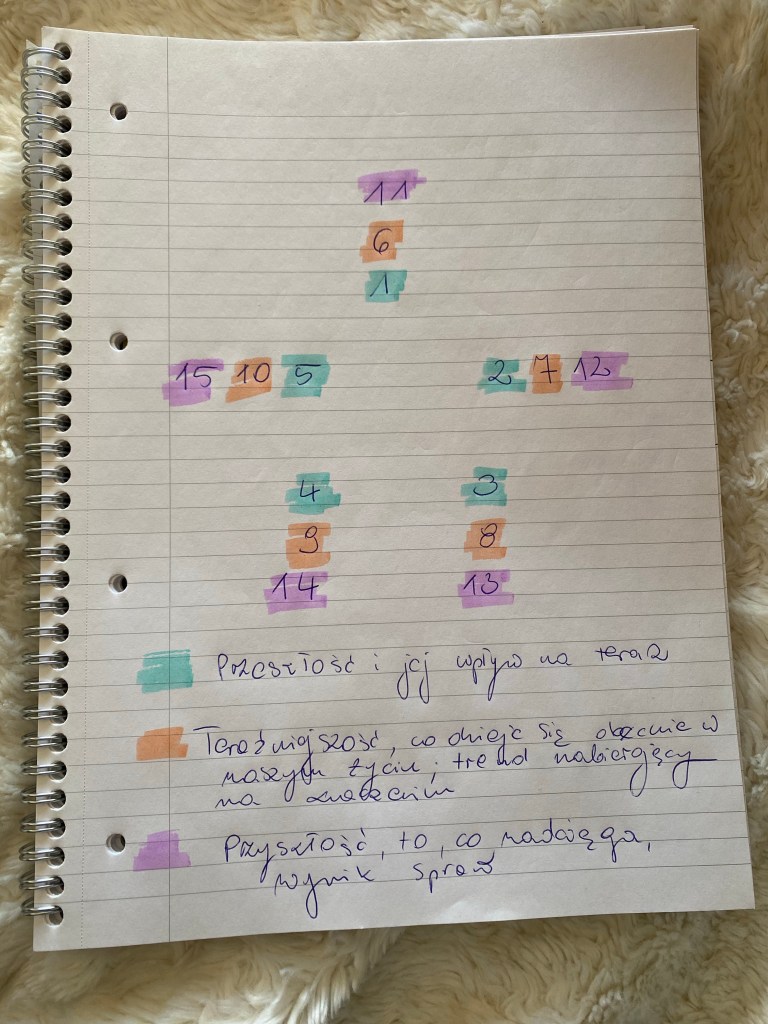 11
6
1
15 10 5 2 7 12
4 3
9 8
14 13
Przeszłość i jej wpływ na teraz
Teraźniejszość, co dzieje się obecnie w
naszym życiu, trend nabierający
na znaczeniu
Przyszłość, to, co nadciąga,
wynik spraw